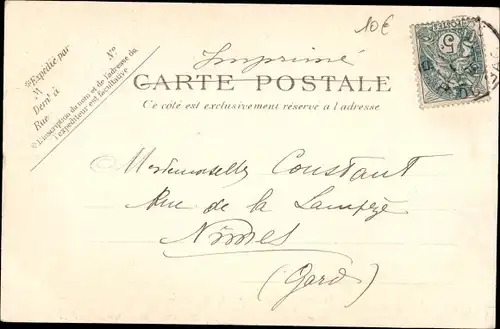 10€
*Expédié par
M
Demt à
Rue
No
(*) L'inscription du nom et de l'adresse de
l'expéditeur est facultative
Imprimé
CARTE POSTALE
Ce côté est exclusivement réservé a l'adresse
5
Mesdemoiselles Constant
Rue de la Lampèze
Nîmes
(Gard)